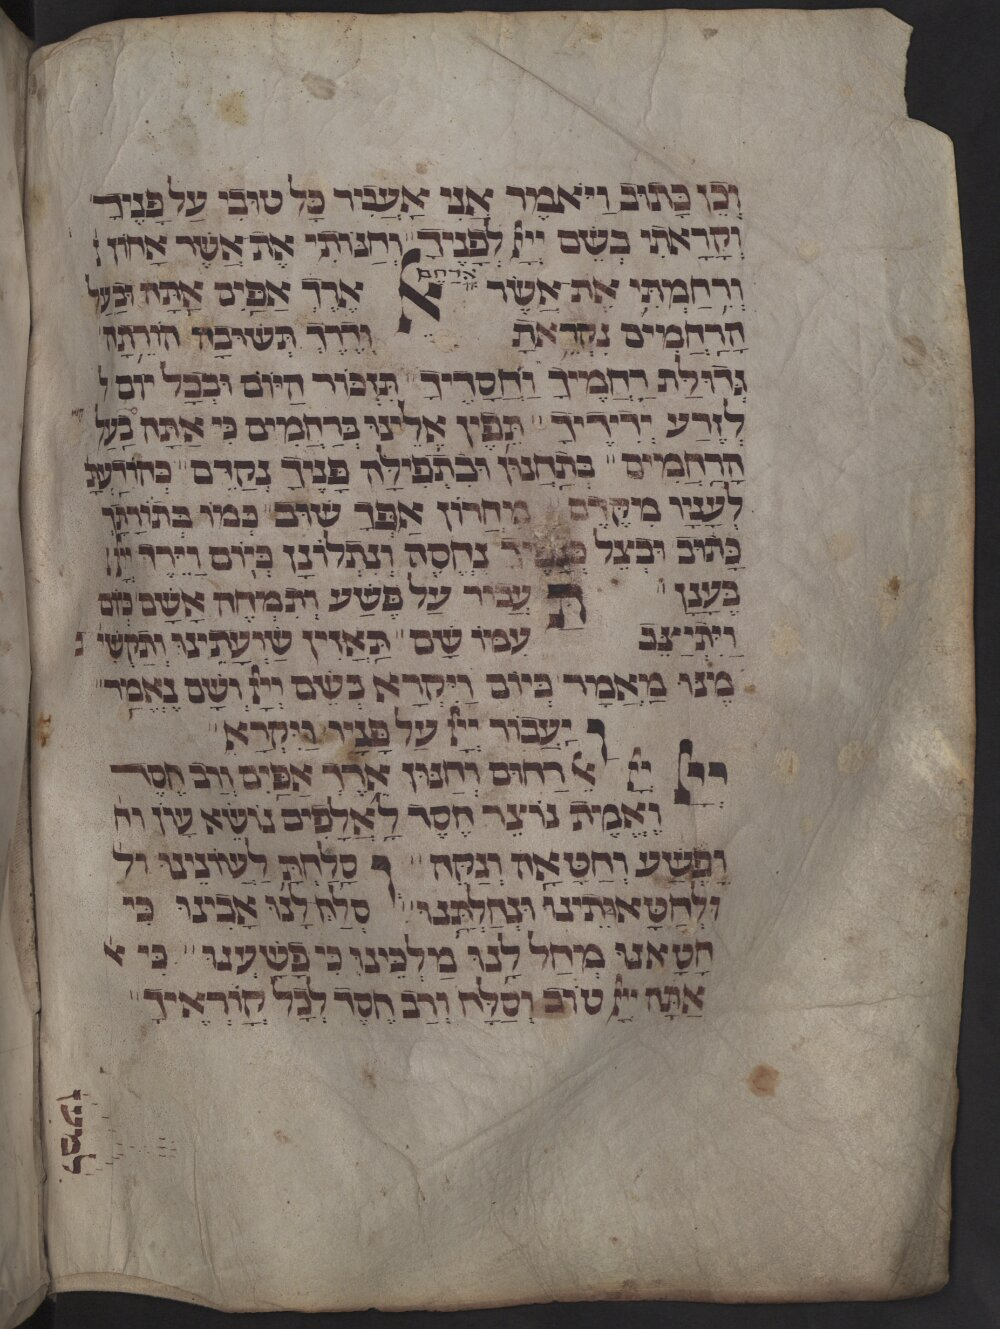 וְכֵן כָּתוּב וַיֹּאמֶר אֲנִי אַעֲבִיר כָּל טוּבִי עַל פָּנֶיךָ
וְקָרָאתִי בְשֵׁם יְיָ לְפָנֶיךָ וְחַנּוֹתִי אֶת אֲשֶׁר אָחוֹן
וְרִחַמְתִּי אֶת אֲשֶׁר אֲרַחֵם אֶרֶךְ אַפַּיִם אַתָּה וּבַעַל
הָרַחֲמִים נִקְרֵאתָ וְדֶרֶךְ תְּשׁוּבָה הוֹרֵתָה
גְּדוּלַּת רַחֲמֶיךָ וַחֲסָדֶיךָ תִּזְכּוֹר הַיּוֹם וּבְכָל יוֹם ל
לְזֶרַע יְדִידֶיךָ תֵּפֶן אֵלֵינוּ בְּרַחֲמִים כִּי אַתָּה בַּעַל
הָרַחֲמִים בְּתַחֲנוּן וּבִתְפִילָּה פָּנֶיךָ נְקַדֵּם כְּהוֹדַעְתָּ
לֶעָנָיו מִקֶּדֶם מֵחֲרוֹן אַפְּךָ שׁוּב כְּמוֹ בְּתוֹרָתְךָ
כָּתוּב וּבְצֵל נֶחֱסֶה וְנִתְלוֹנָן כְּיוֹם וַיֵּרֶד יְיָ
בֶּעָנָן תַּעֲבִיר עַל פֶּשַׁע וְתִמְחֶה אָשָׁם כְּיוֹם
וַיִּתְיַצֵּב עִמּוֹ שָׁם תַּאֲזִין שַׁוְעָתֵינוּ וְתַקְשִׁי
מֶנּוּ מַאֲמָר כְּיוֹם וַיִּקְרָא בְשֵׁם יְיָ וְשָׁם נֶאֱמַר
וַיַּעֲבוֹר יְיָ עַל פָּנָיו וַיִּקְרָא
יְיָ יְיָ אֵל רַחוּם וְחַנּוּן אֶרֶךְ אַפַּיִם וְרַב חֶסֶד
וֶאֱמֶת נוֹצֵר חֶסֶד לָאֲלָפִים נוֹשֵׂא עָוֹן וח
וָפֶשַׁע וְחַטָּאָה וְנַקֵּה וְסָלַחְתָּ לַעֲוֹנֵינוּ ול
וּלְחַטָּאתֵינוּ וּנְחַלְתָּנוּ סְלַח לָנוּ אָבִינוּ כִּי
חָטָאנוּ מְחַל לָנוּ מַלְכֵּינוּ כִּי פָשָׁעְנוּ כִּי א
אַתָּה יְיָ טוֹב וְסַלָּח וְרַב חֶסֶד לְכָל קוֹרְאֶיךָ